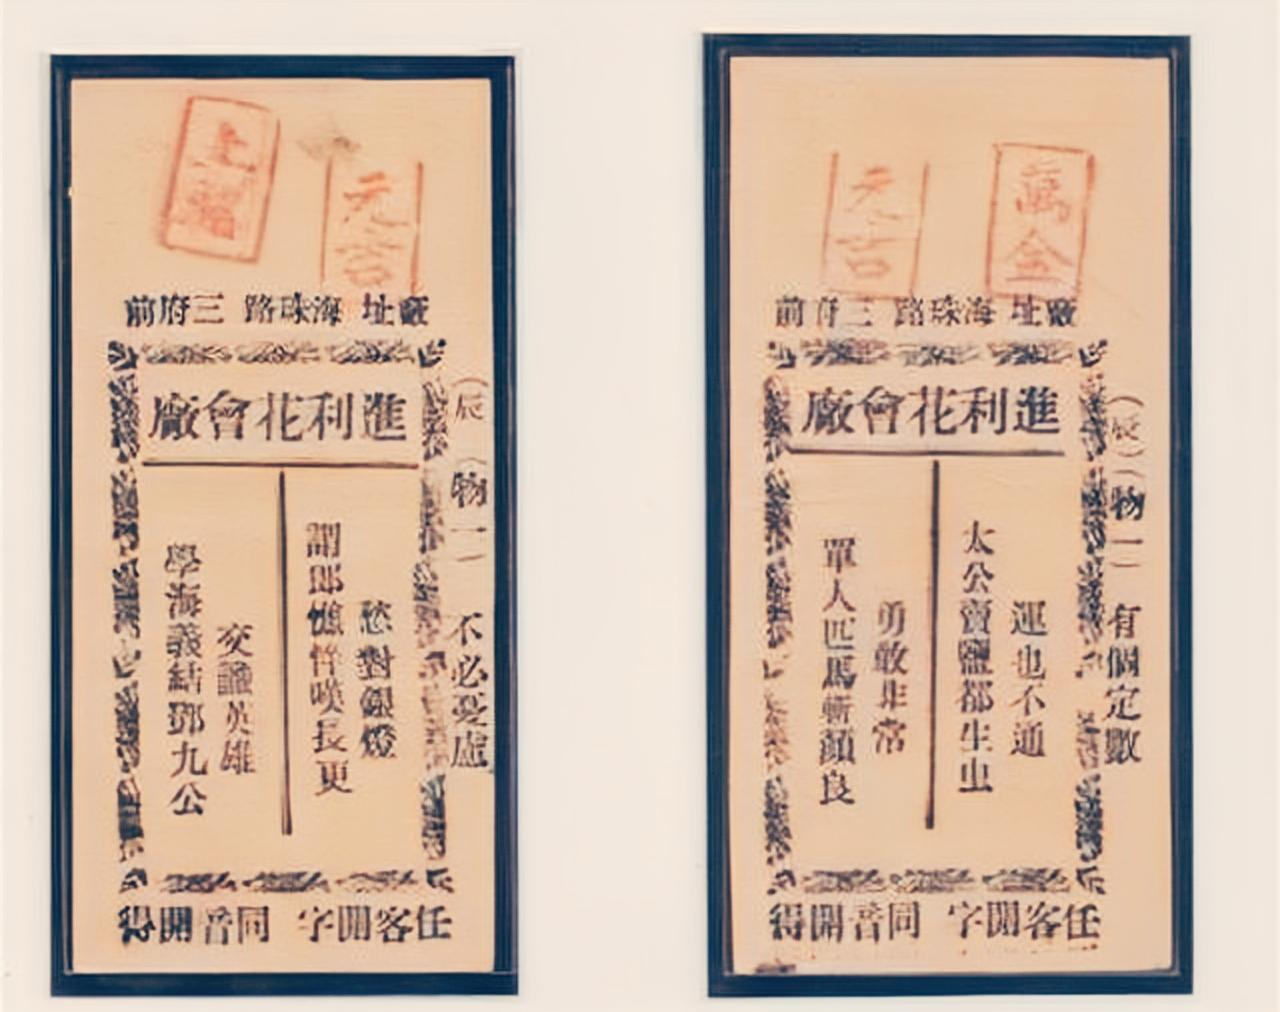 上
元吉
廠址 海珠路 三府前
進利花會廠
(辰)
(物一)
不必憂慮
愁對銀燈
謝郎憔悴嘆長更
交誼英雄
學海義結鄧九公
任客開字 同音開得
元吉
萬金
廠址 海珠路 三府前
進利花會廠
(辰)(物一)
有個定數
運也不通
太公賣鹽都生虫
勇敢非常
單人匹馬斬顏良
任客開字 同音開得